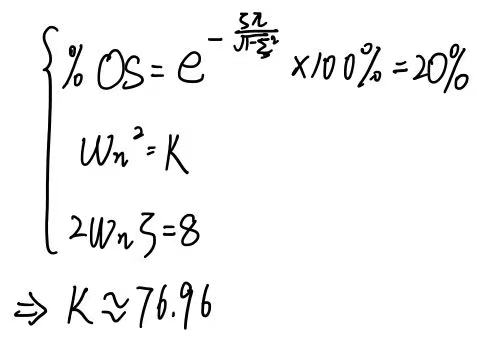 %OS = e^{-\frac{ζπ}{\sqrt{1-ζ^2}}} × 100% = 20%
Wn² = K
2Wnζ = 8
⇒ K ≈ 76.96